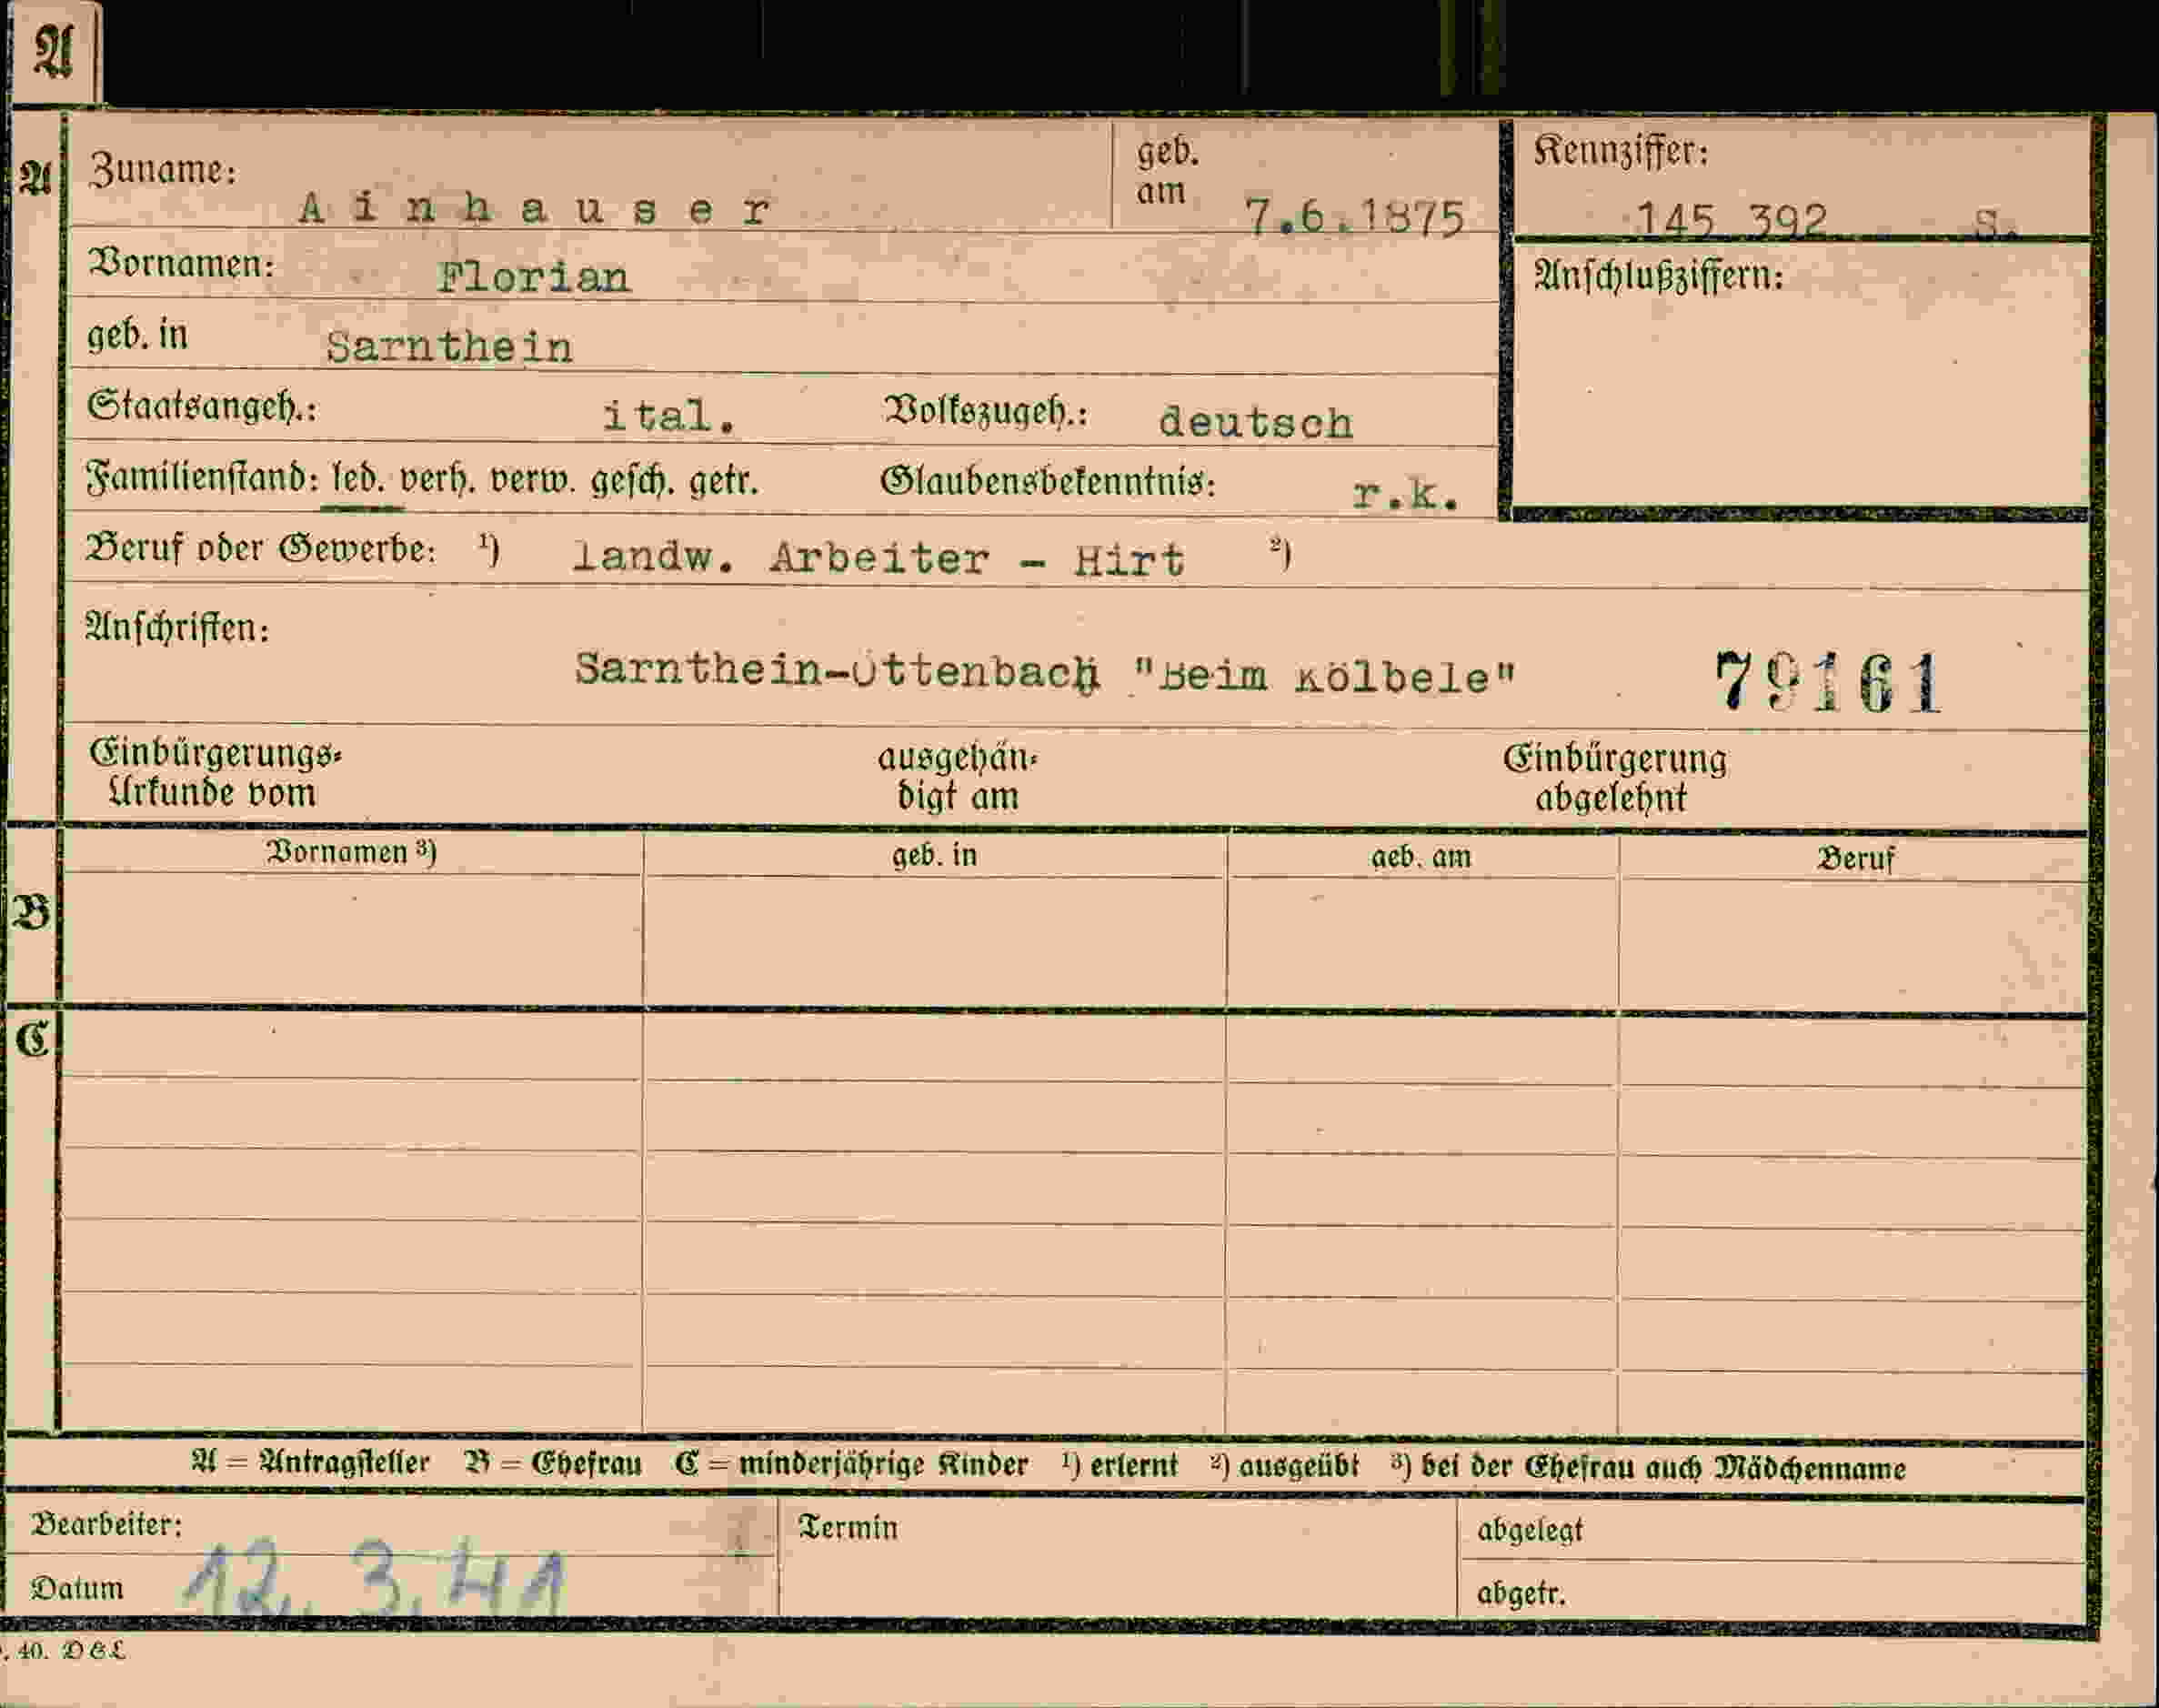 A
A
Zuname: Ainhauser
geb. am 7.6.1875
Kennziffer: 145 392 S.
Vornamen: Florian
Anschlußziffern:
geb. in Sarnthein
Staatsangeh.: ital. Volkszugeh.: deutsch
Familienstand: led. verh. verw. gesch. getr. Glaubensbekenntnis: r.k.
Beruf oder Gewerbe: ¹) landw. Arbeiter - Hirt ²)
Anschriften:
Sarnthein-Öttenbach "Beim Kölbele" 79161
Einbürgerungs- ausgehän- Einbürgerung
Urkunde vom digt am abgelehnt
Vornamen ³) geb. in geb. am Beruf
B
C
A = Antragsteller B = Ehefrau C = minderjährige Kinder ¹) erlernt ²) ausgeübt ³) bei der Ehefrau auch Mädchenname
Bearbeiter: Termin abgelegt
Datum 12. 3. 41 abgetr.
. 40. DGL